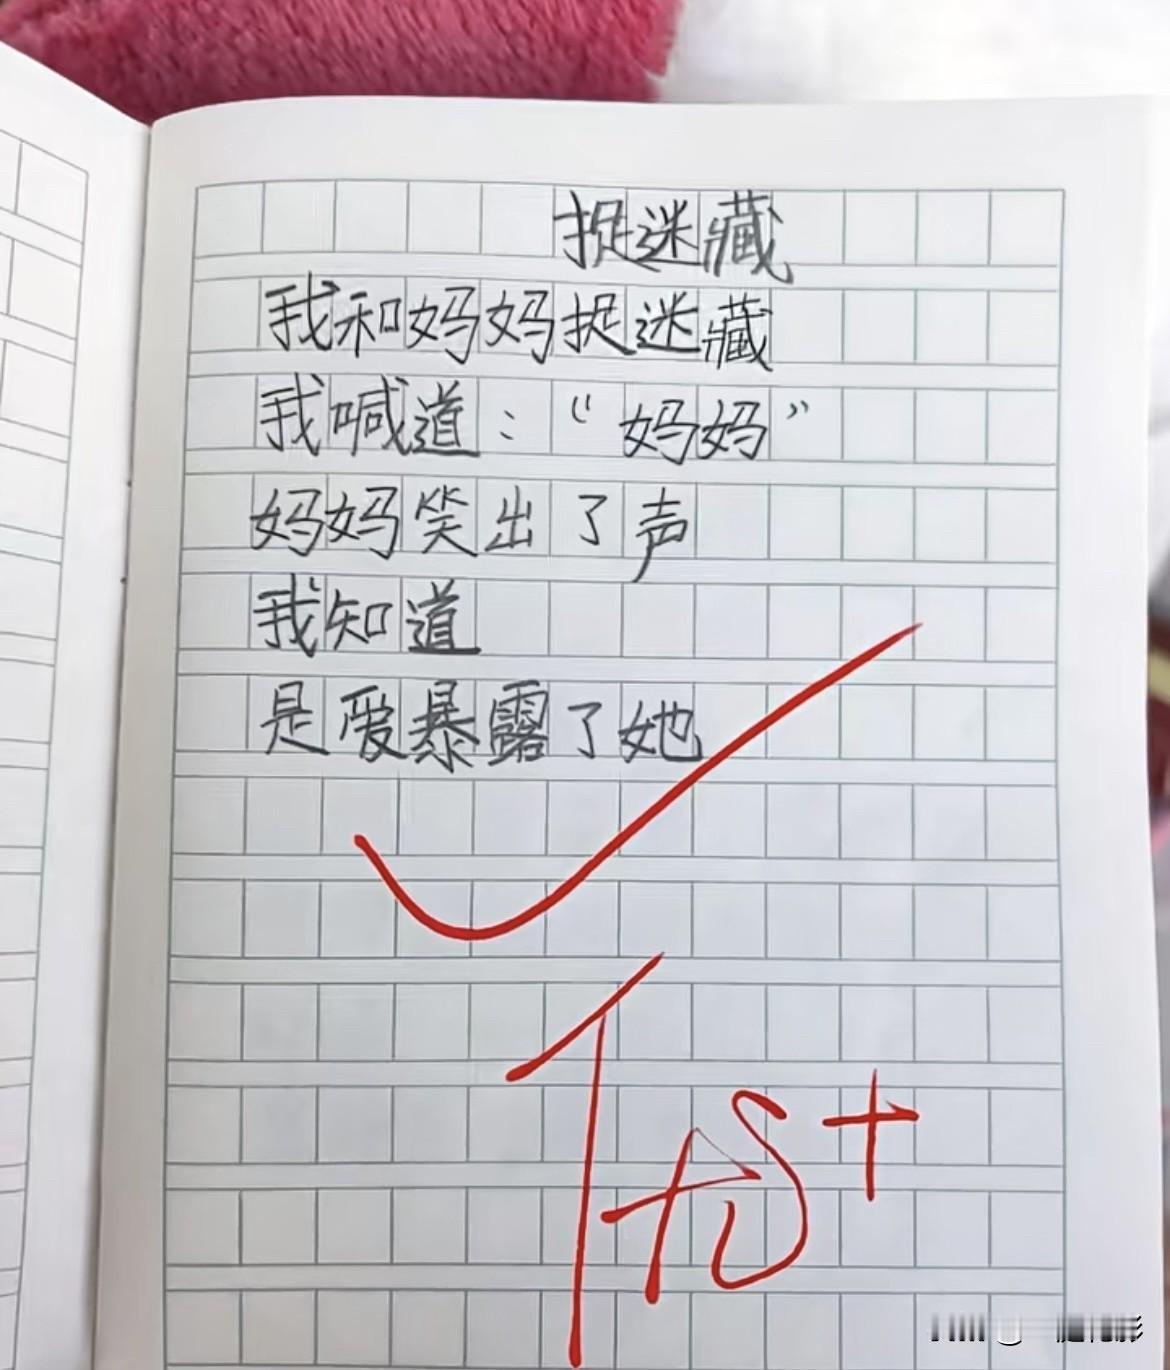 捉迷藏
我和妈妈捉迷藏
我喊道：“妈妈”
妈妈笑出了声
我知道
是爱暴露了她
优+